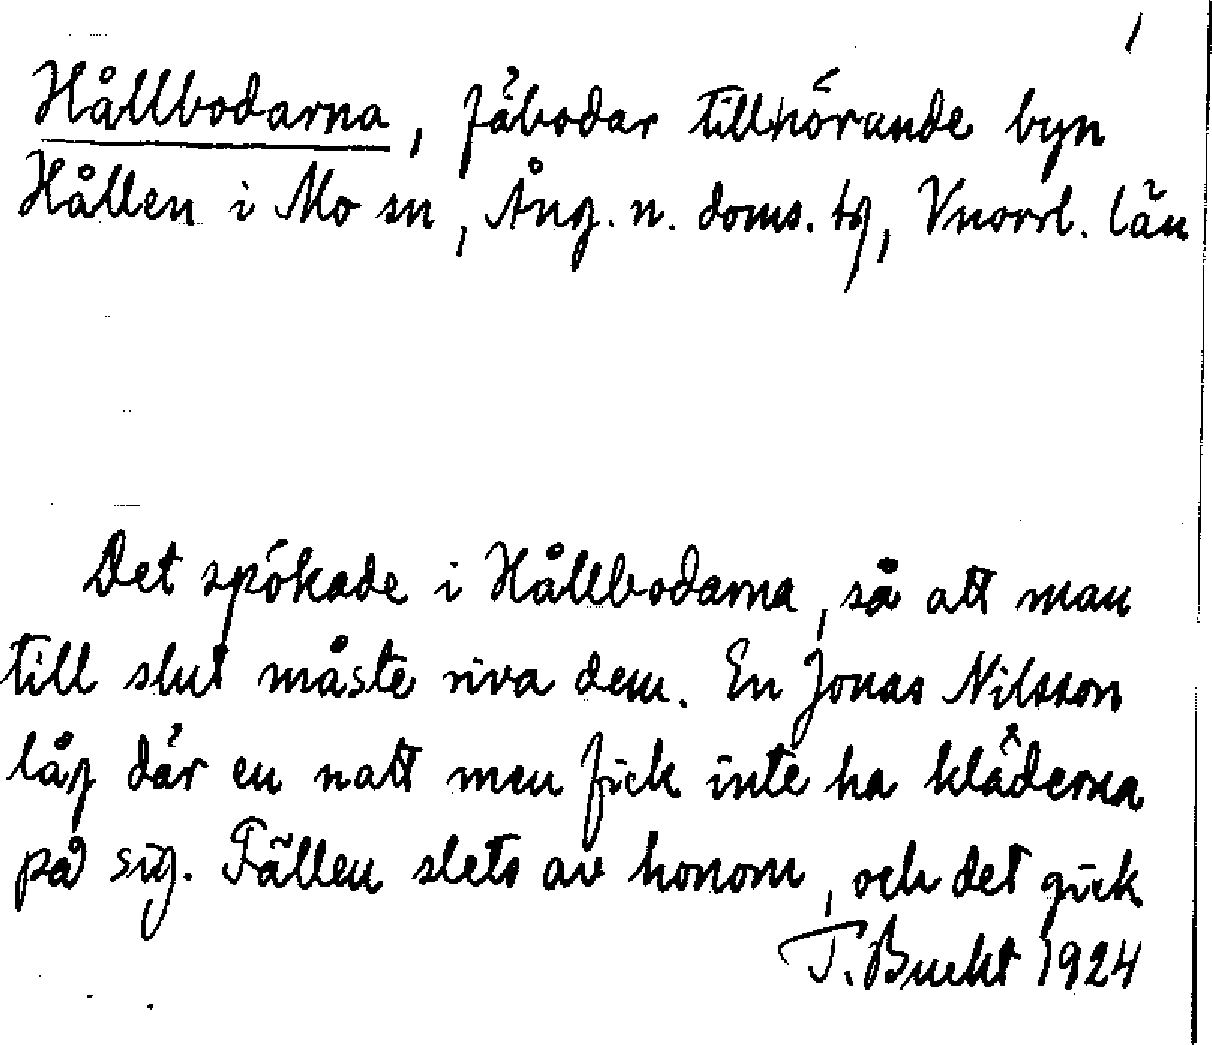 1
Hållbodarna, fäbodar tillhörande byn
Hållen i Mo sn, Ång. n. doms. tg, Vnorrl. län
Det spökade i Hållbodarna, så att man
till slut måste riva dem. En Jonas Nilsson
låg där en natt men fick inte ha kläderna
på sig. Fällen slets av honom, och det gick
T. Bucht 1924